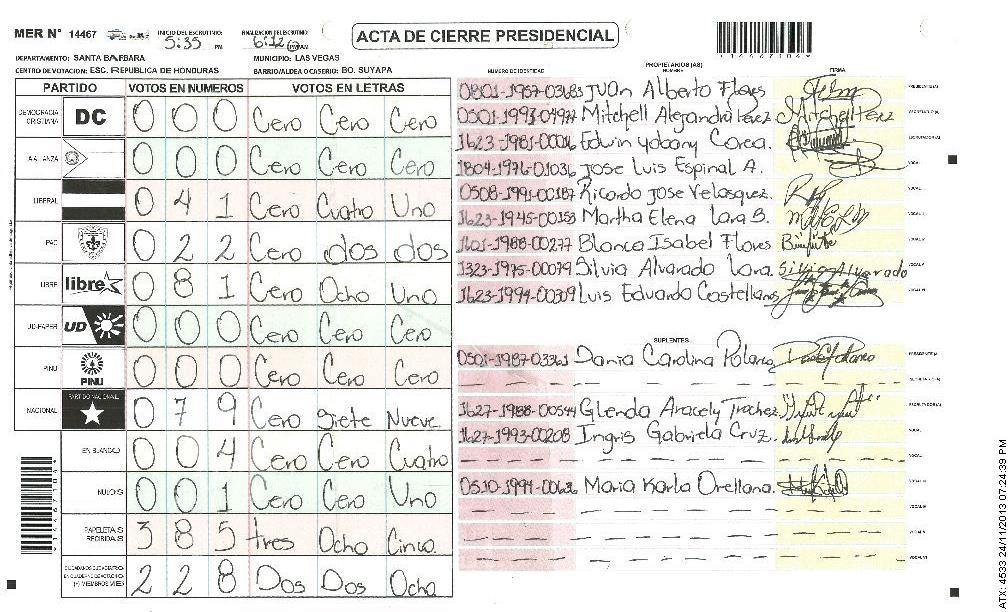 MER N° 14467 INICIO DEL ESCRUTINIO: 5:35 PM FINALIZACION DEL ESCRUTINIO: 6:12 PM
ACTA DE CIERRE PRESIDENCIAL
14467104
DEPARTAMENTO: SANTA BARBARA MUNICIPIO: LAS VEGAS
CENTRO DE VOTACION: ESC. REPUBLICA DE HONDURAS BARRIO/ALDEA O CASERIO: BO. SUYAPA
PARTIDO VOTOS EN NUMEROS VOTOS EN LETRAS
DEMOCRACIA CRISTIANA DC 0 0 0 Cero Cero Cero
ALIANZA 0 0 0 Cero Cero Cero
LIBERAL 0 4 1 Cero Cuatro Uno
PAC 0 2 2 Cero dos dos
LIBRE libre 0 8 1 Cero Ocho Uno
UD-FAPER UD 0 0 0 Cero Cero Cero
PINU PINU 0 0 0 Cero Cero Cero
NACIONAL PARTIDO NACIONAL 0 7 9 Cero siete Nueve
EN BLANCO 0 0 4 Cero Cero Cuatro
NULOS 0 0 1 Cero Cero Uno
PAPELETAS RECIBIDAS 3 8 5 tres Ocho Cinco
2 2 8 Dos Dos Ocho
PROPIETARIOS (AS)
NUMERO DE IDENTIDAD NOMBRE FIRMA
Juan Alberto Flores PRESIDENTE(A)
0501-1993-04977 Mitchell Alejandra Perez SECRETARIO(A)
1623-1981-00016 Edwin Yobany Corea. ESCRUTADOR(A)
1804-1976-01036 Jose Luis Espinal A. VOCAL I
0508-1991-00187 Ricardo Jose Velasquez. VOCAL II
1623-1945-00153 Martha Elena Lara B. VOCAL III
1601-1988-00277 Blanca Isabel Flores VOCAL IV
1323-1975-00079 Silvia Alvarado Lara. Silvia Alvarado VOCAL V
1623-1994-00309 Luis Eduardo Castellanos VOCAL VI
SUPLENTES
0501-1987-03361 Dania Carolina Polanco PRESIDENTE(A)
SECRETARIO(A)
1627-1988-00544 Glenda Aracely Trochez. ESCRUTADOR(A)
1627-1993-00208 Ingris Gabriela Cruz. VOCAL I
VOCAL II
Maria Karla Orellana. VOCAL III
VOCAL IV
VOCAL V
VOCAL VI
ATX: 4533 24/11/2013 07:24:39 PM